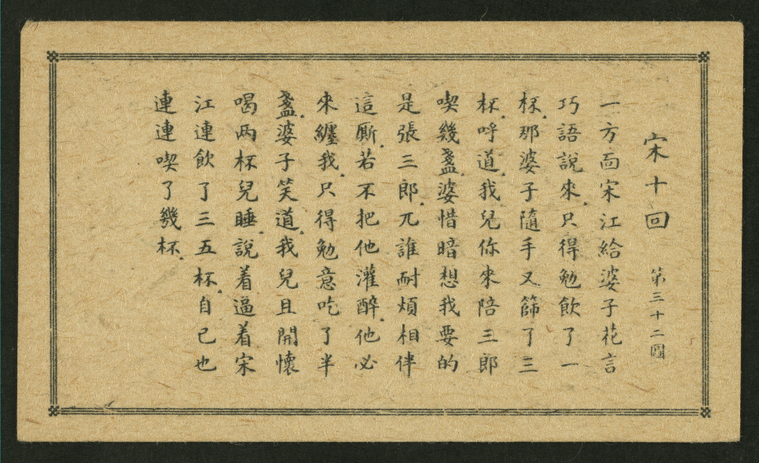 宋十回
第三十二圖
一方面宋江給婆子花言
巧語說來.只得勉飲了一
杯.那婆子隨手又篩了三
杯.呼道.我兒你來陪三郎
喫幾盞.婆惜暗想我要的
是張三郎.兀誰耐煩相伴
這厮.若不把他灌醉.他必
來纏我.只得勉意吃了半
盞.婆子笑道.我兒且開懷
喝两杯兒睡.說着逼着宋
江連飲了三五杯.自己也
連連喫了幾杯.